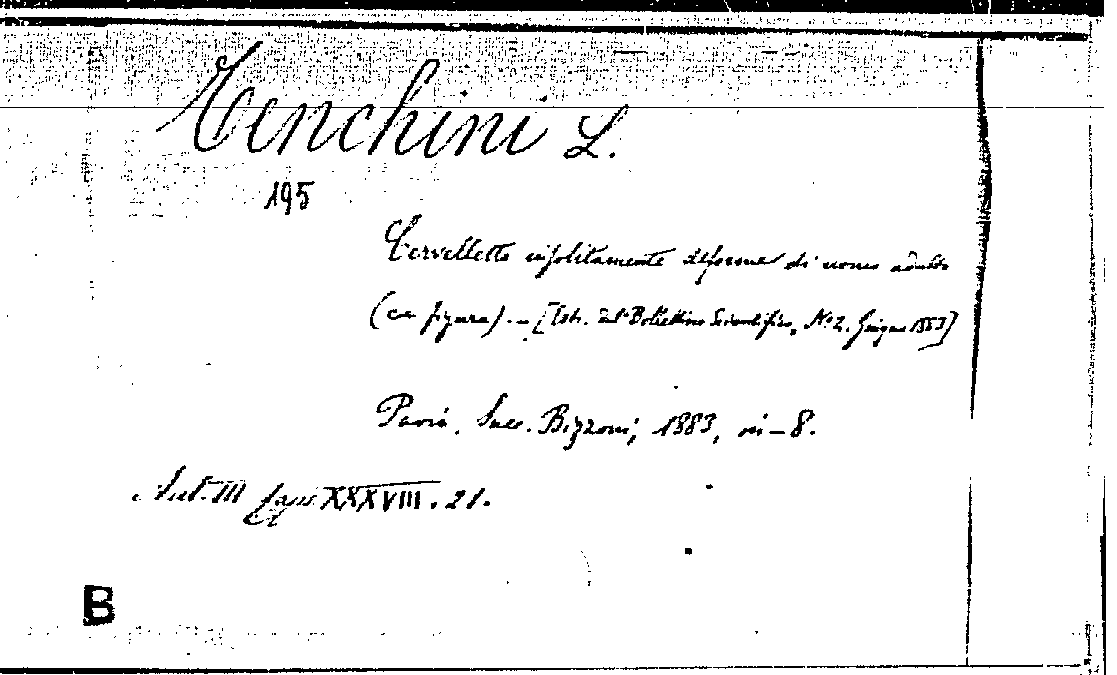 Tenchini L.
195
Cervelletto insolitamente deforme di uomo adulto
(con figura). — [Estr. dal Bollettino Scientifico, N.º 2. Giugno 1883]
Pavia, Succ. Bizzoni, 1883, in-8.
XXXVIII. 21.
B